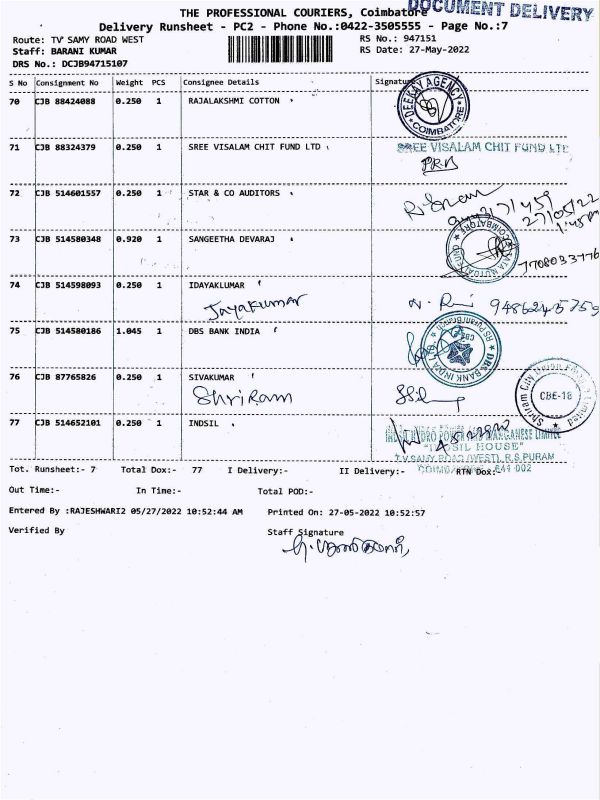 THE PROFESSIONAL COURIERS, Coimbatore
DOCUMENT DELIVERY
Delivery Runsheet - PC2 - Phone No.:0422-3505555 - Page No.:7
Route: TV SAMY ROAD WEST RS No.: 947151
Staff: BARANI KUMAR RS Date: 27-May-2022
DRS No.: DCJB94715107
S No Consignment No Weight PCS Consignee Details Signature
70 CJB 88424088 0.250 1 RAJALAKSHMI COTTON
DEEKAY AGENCY COIMBATORE
71 CJB 88324379 0.250 1 SREE VISALAM CHIT FUND LTD
SREE VISALAM CHIT FUND LTD
72 CJB 514601557 0.250 1 STAR & CO AUDITORS
27/05/22
73 CJB 514580348 0.920 1 SANGEETHA DEVARAJ
7708033776
74 CJB 514598093 0.250 1 IDAYAKLUMAR
Jayakumar 9486245759
75 CJB 514580186 1.045 1 DBS BANK INDIA
DBS BANK INDIA LTD RS Puram Branch
76 CJB 87765826 0.250 1 SIVAKUMAR
Shriram
CBE-18
77 CJB 514652101 0.250 1 INDSIL
INDSIL HYDRO POWER AND MANGANESE LIMITED
"INDSIL HOUSE"
T.V.SAMY ROAD (WEST), R.S.PURAM
COIMBATORE - 641 002
Tot. Runsheet:- 7 Total Dox:- 77 I Delivery:- II Delivery:- RTN Dox:-
Out Time:- In Time:- Total POD:-
Entered By :RAJESHWARI2 05/27/2022 10:52:44 AM Printed On: 27-05-2022 10:52:57
Verified By Staff Signature